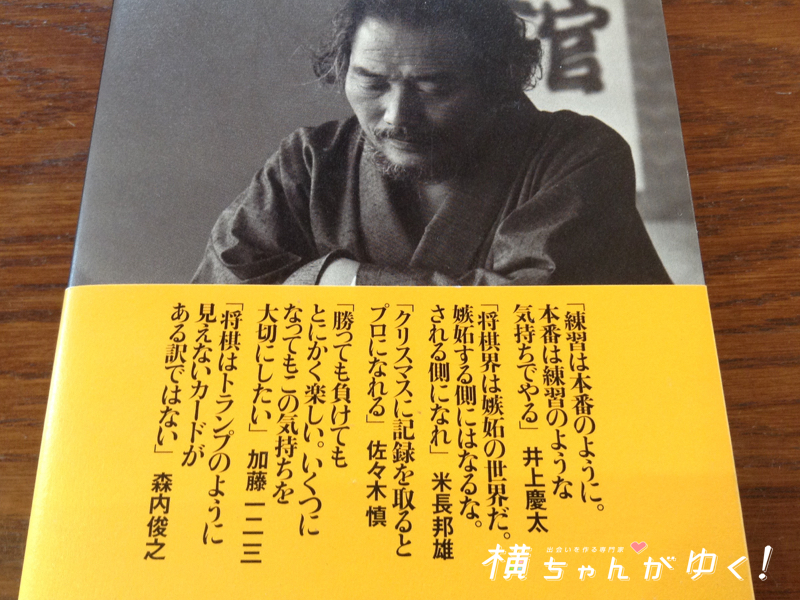 館
「練習は本番のように。
本番は練習のような
気持ちでやる」 井上慶太
「将棋界は嫉妬の世界だ。
嫉妬する側にはなるな。
される側になれ」 米長邦雄
「クリスマスに記録を取ると
プロになれる」 佐々木慎
「勝っても負けても
とにかく楽しい。いくつに
なってもこの気持ちを
大切にしたい」 加藤一二三
「将棋はトランプのように
見えないカードが
ある訳ではない」 森内俊之
出会いを作る専門家
横ちゃんがゆく!